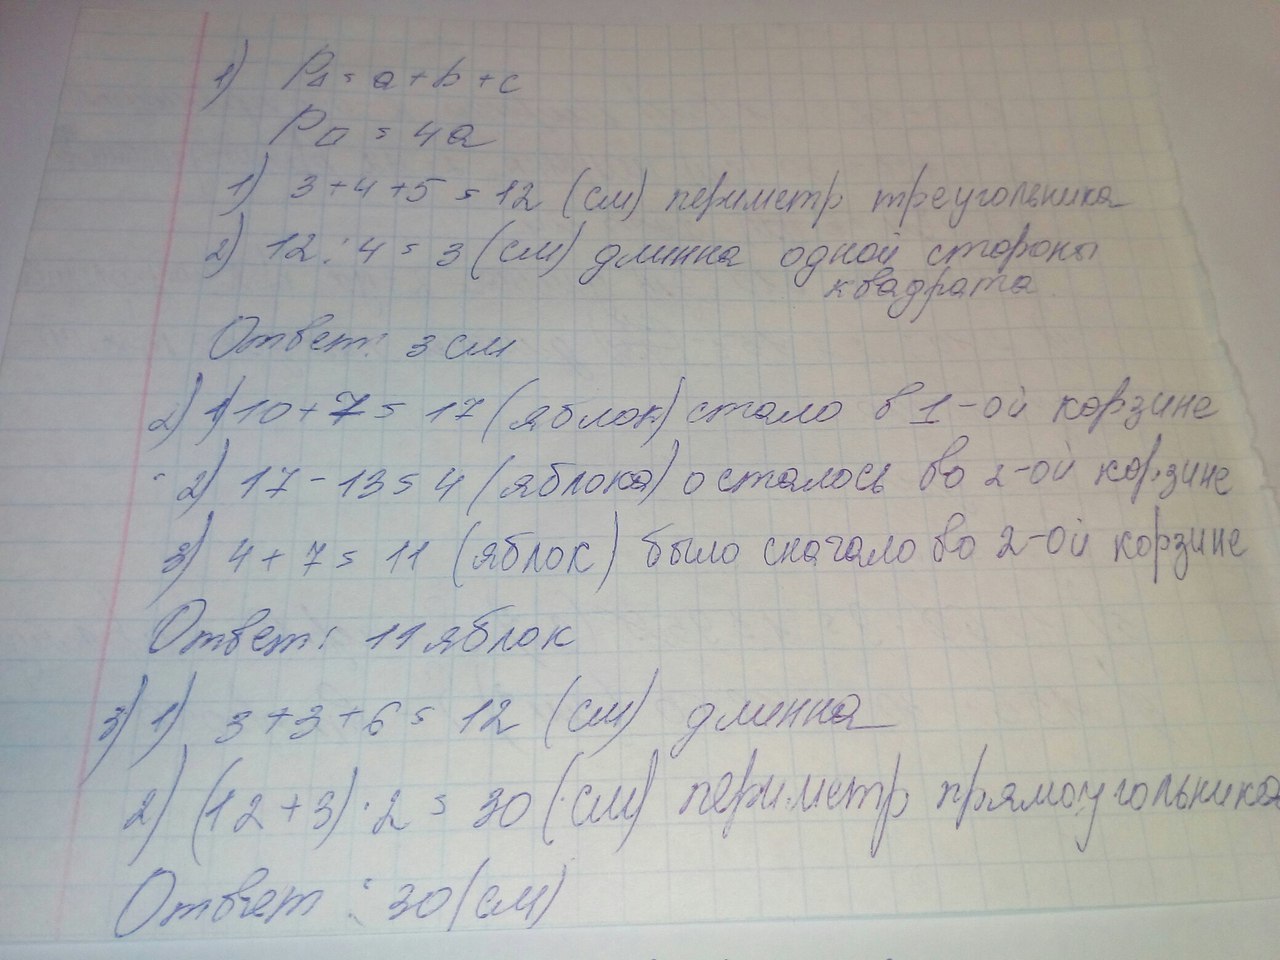 1) P△ = a + b + c
P□ = 4a
1) 3 + 4 + 5 = 12 (см) периметр треугольника
2) 12 : 4 = 3 (см) длинна одной стороны
квадрата
Ответ: 3 см
2) 1) 10 + 7 = 17 (яблок) стало в 1-ой корзине
2) 17 - 13 = 4 (яблока) осталось во 2-ой корзине
3) 4 + 7 = 11 (яблок) было сначало во 2-ой корзине
Ответ: 11 яблок
3) 1) 3 + 3 + 6 = 12 (см) длинна
2) (12 + 3) · 2 = 30 (см) периметр прямоугольника
Ответ: 30 (см)